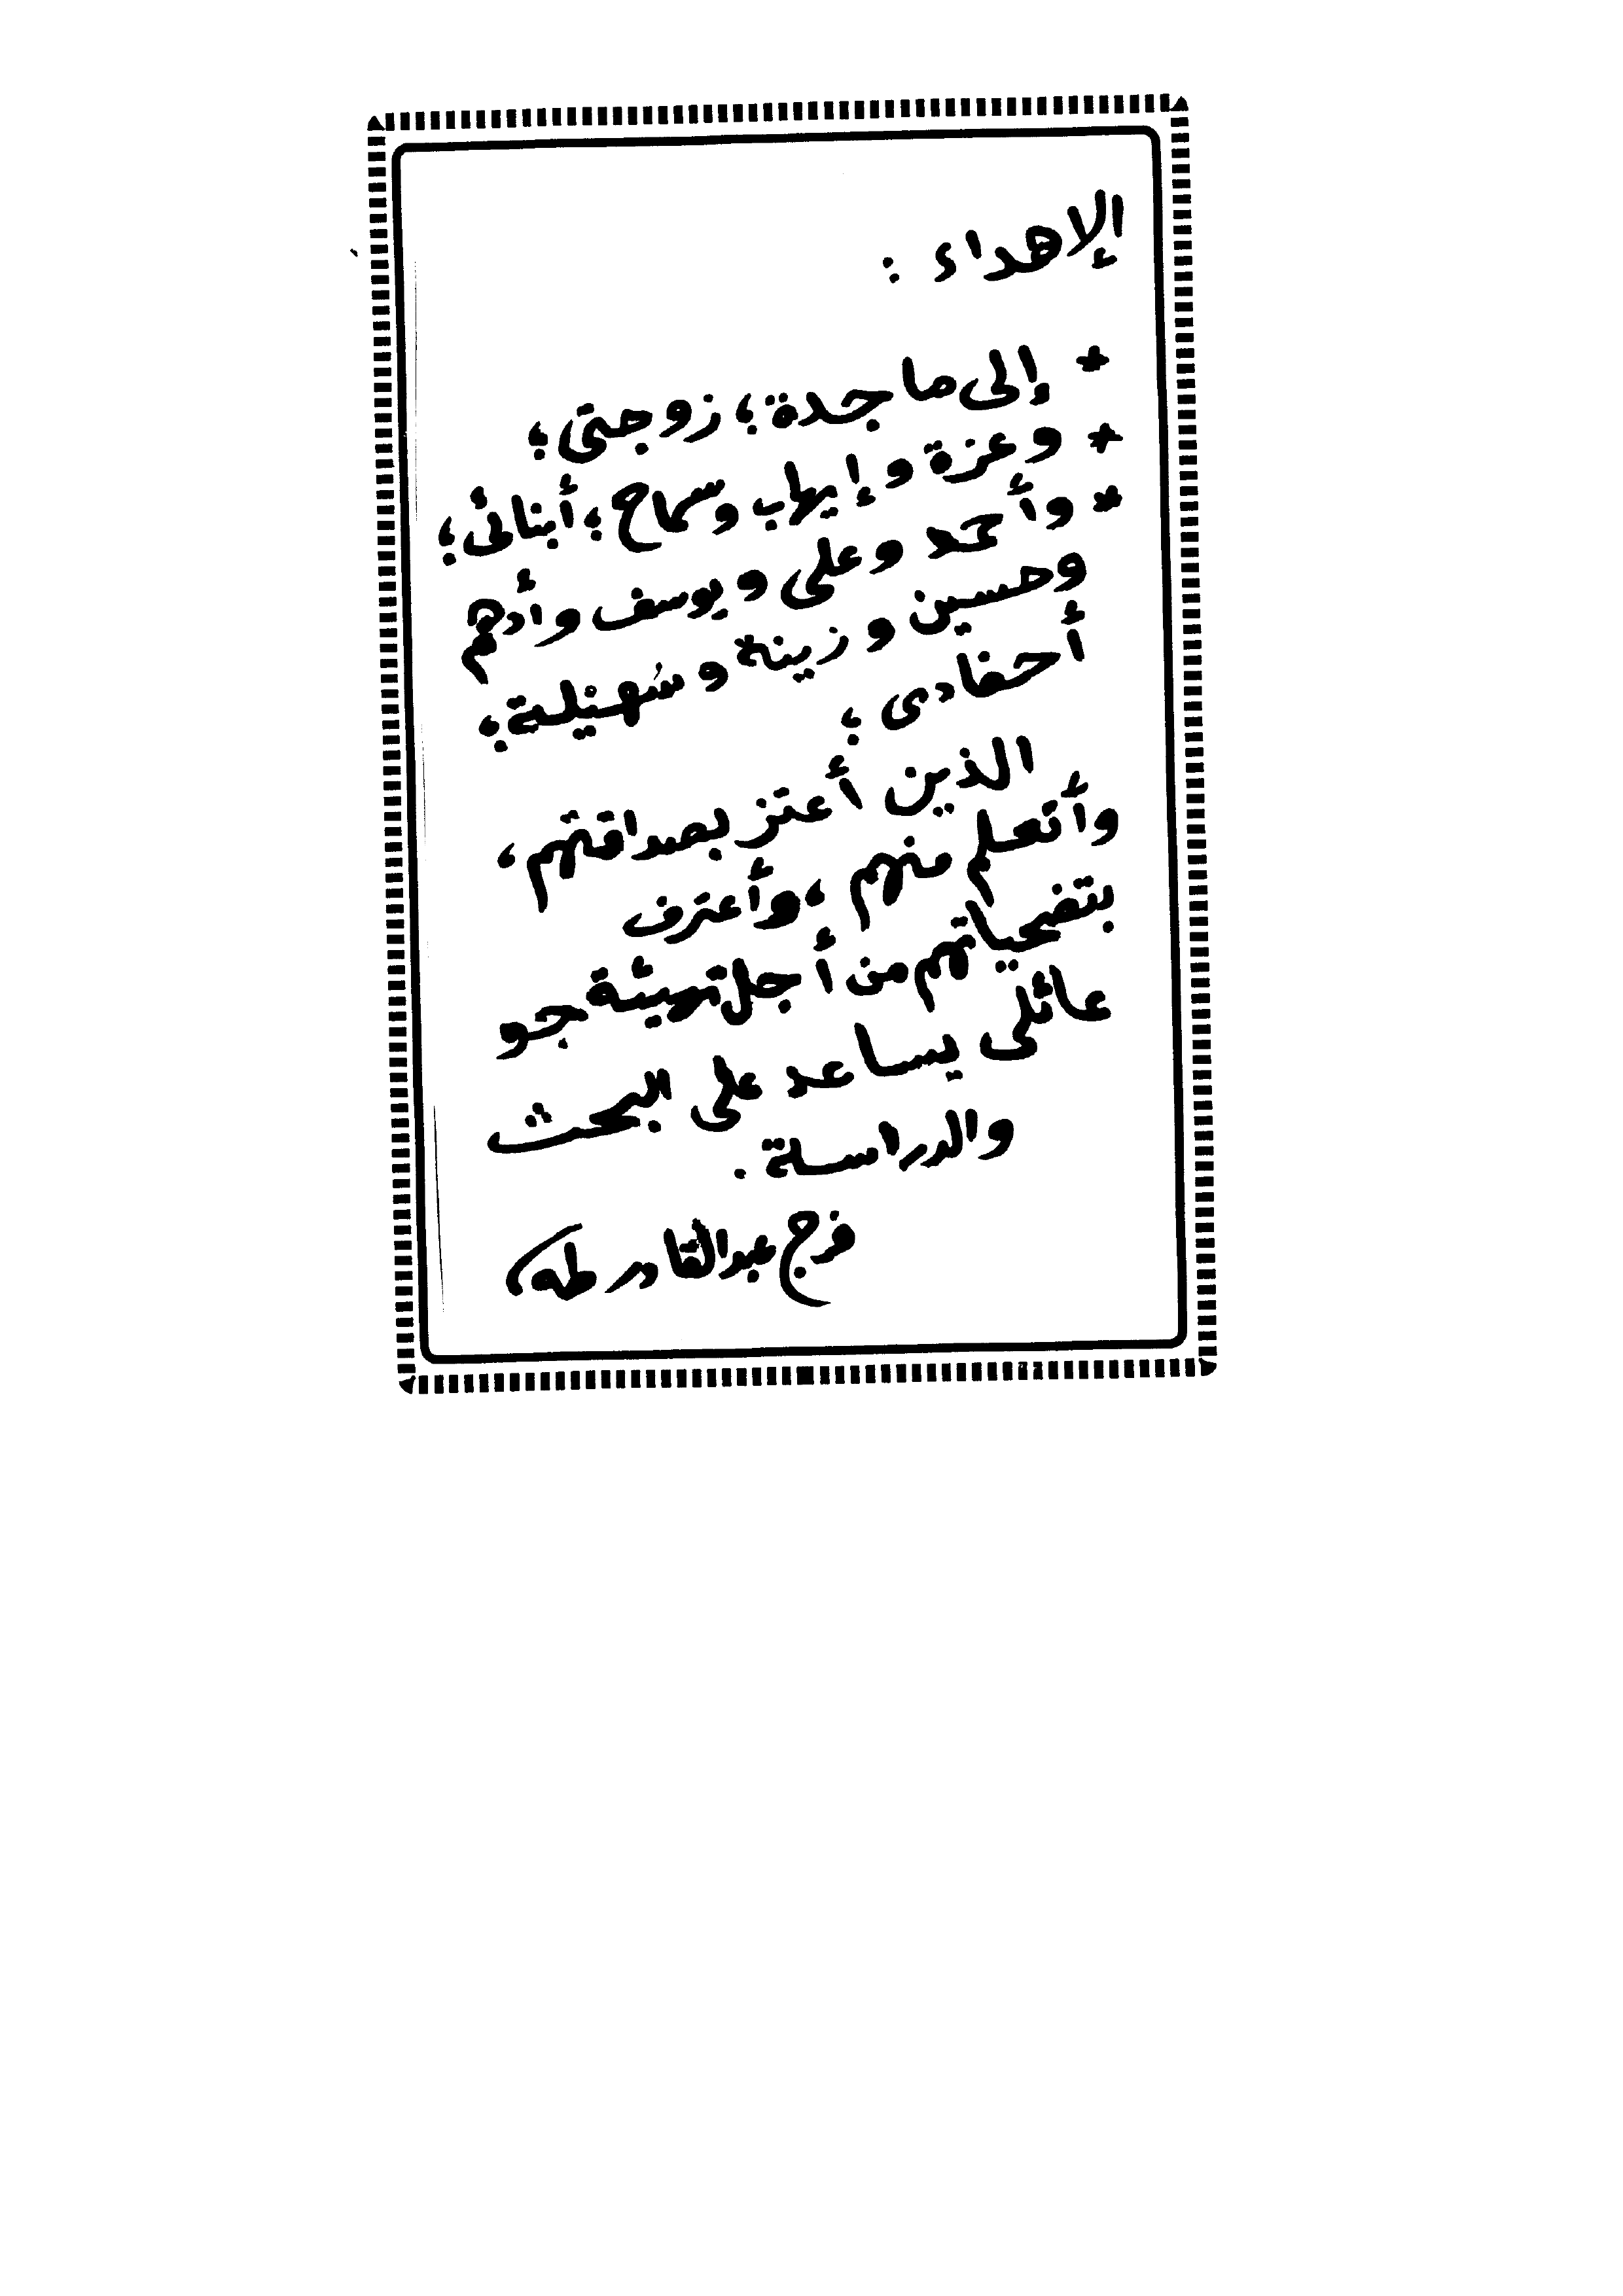 الإهداء :
* إلى ماجدة ؛ زوجتى ؛
* وعزة وإيهاب وسماح ؛ أبنائى ؛
* وأحمد وعلى ويوسف وأدهم
وحسين وزينة وسُهيْلة ؛
أحفادى ؛
الذين أعتز بصداقتهم ،
وأتعلم منهم ، وأعترف
بتضحياتهم من أجل تهيئة جو
عائلى يساعد على البحث
والدراسة .
فرج عبدالقادر طه